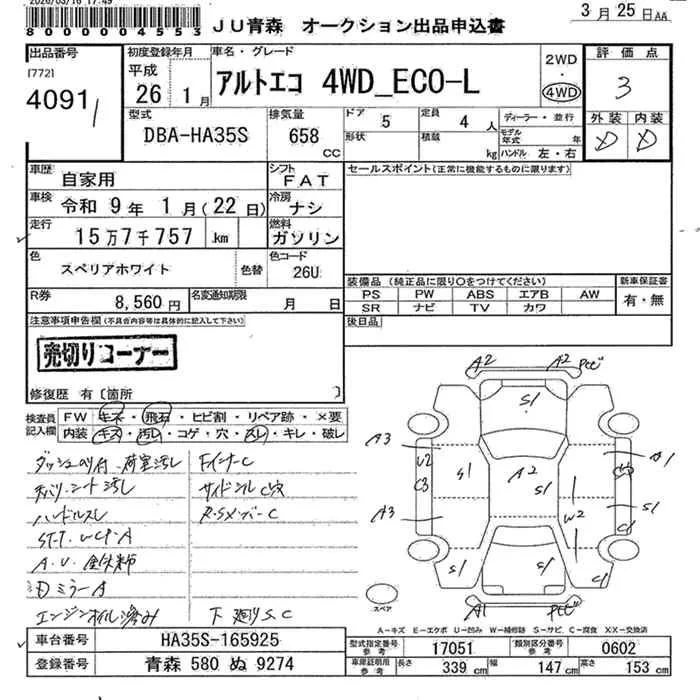 2026/03/16 17:49
3月25日AA
80000004553
JU青森 オークション出品申込書
出品番号 初度登録年月 車名・グレード 2WD・4WD 評価点
[772] 平成 26 1月 アルトエコ 4WD_ECO-L 3
4091
型式 排気量 ドア 5 定員 4人 ディーラー・並行 外装 内装
DBA-HA35S 658 CC 形状 積載 kg モデル年式 年 ハンドル 左・右 D D
車歴 自家用 シフト FAT セールスポイント(正常に機能するものに限ります)
車検 令和 9年 1月(22日) 冷房 ナシ
走行 15万7千757 km 燃料 ガソリン
色 スペリアホワイト 色替 色コード 26U
装備品(純正品に限り〇をつけてください) 新車保証書
R券 8,560円 名変通知期限 月 日
PS PW ABS エアB AW 有・無
SR ナビ TV カワ
注意事項申告欄(不具合内容等は具体的に記入して下さい) 後日品
売切りコーナー
修復歴 有〔箇所 〕
検査員記入欄 FW キズ・飛石・ヒビ割・リペア跡・×要
内装 キズ・汚レ・コゲ・穴・スレ・キレ・破レ
荷室汚レ FインナーC
シート汚レ
ハンドルスレ
A
ミラーA
エンジンオイル滲み 下廻りS.C
A2 A2
S1
A3 U2 C3 S1 A2 S1 A1
A3 W2 S1 C1
S1 S1 C1
A1
スペア
A-キズ E-エクボ U-凹み W-補修跡 S-サビ C-腐食 XX-交換済
車台番号 HA35S-165925 型式指定番号 参考 17051 類別区分番号 参考 0602
登録番号 青森 580 ぬ 9274 車庫証明用 参考 長さ 339cm 幅 147cm 高さ 153cm